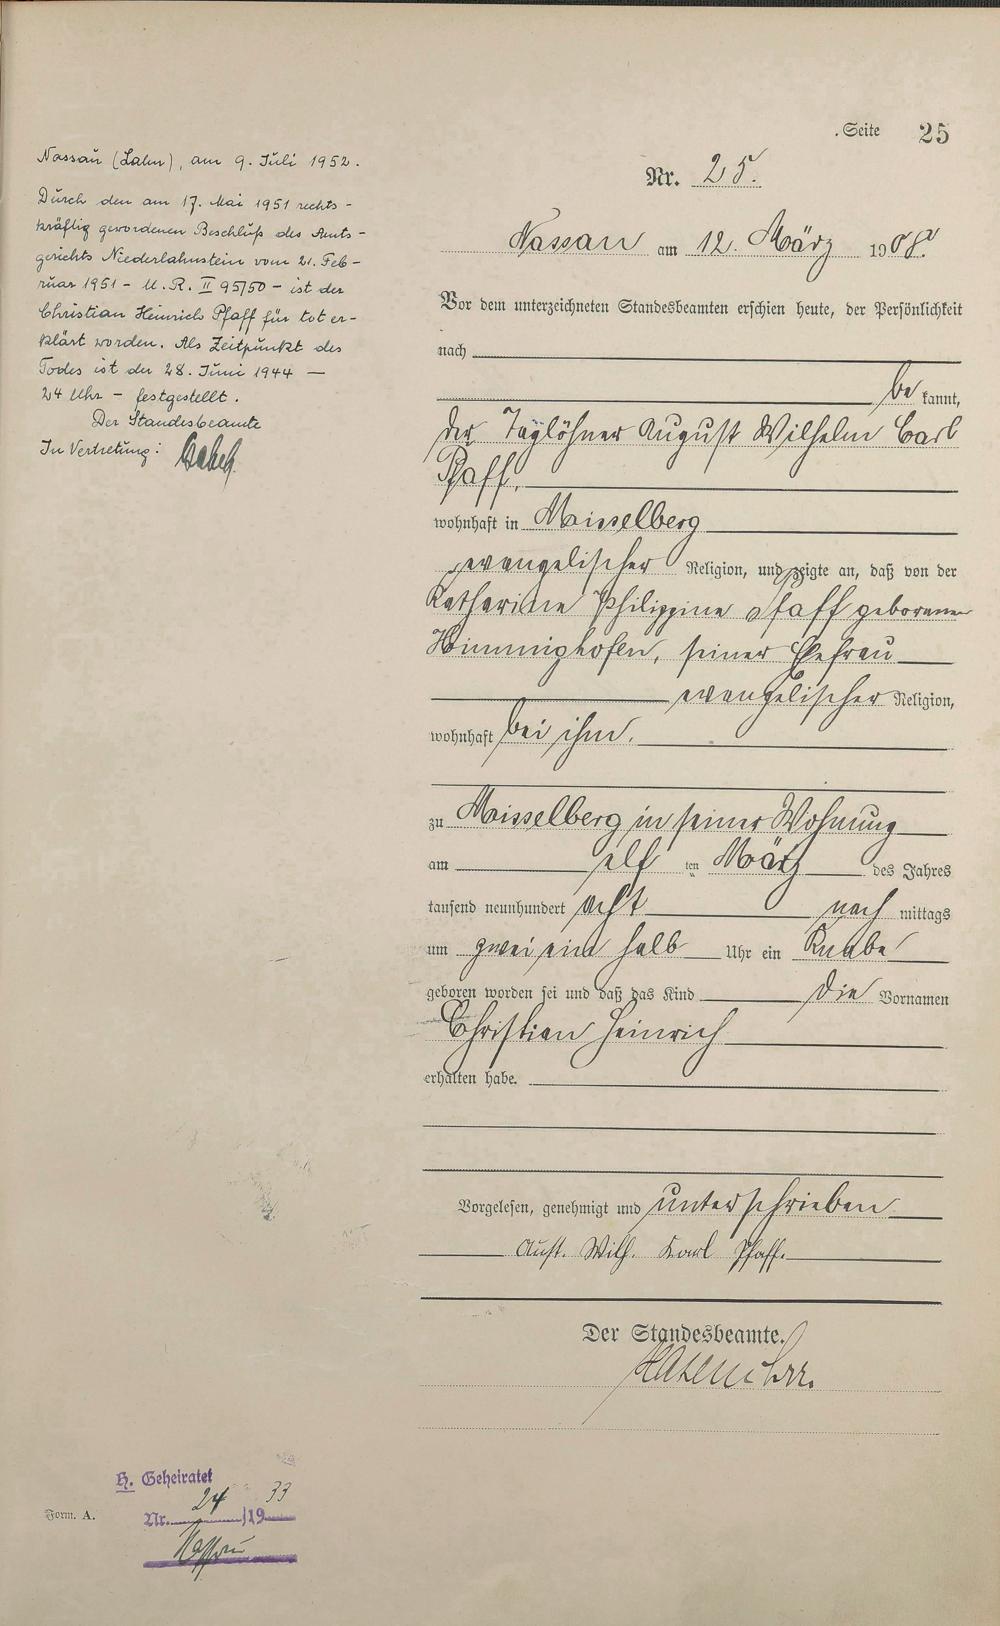 Seite 25
Nr. 25.
Nassau am 12. März 1908.
Vor dem unterzeichneten Standesbeamten erschien heute, der Persönlichkeit
nach
be kannt,
der Taglöhner August Wilhelm Carl
Pfaff,
wohnhaft in Misselberg
evangelischer Religion, und zeigte an, daß von der
Katharine Philippine Pfaff geborenen
Himmighofen, seiner Ehefrau
evangelischer Religion,
wohnhaft bei ihm.
zu Misselberg in seiner Wohnung
am elf ten März des Jahres
tausend neunhundert acht nach mittags
um zwei ein halb Uhr ein Knabe
geboren worden sei und daß das Kind die Vornamen
Christian Heinrich
erhalten habe.
Vorgelesen, genehmigt und unterschrieben
Aust. Wilh. Karl Pfaff.
Der Standesbeamte.
Nassau (Lahn), am 9. Juli 1952.
Durch den am 17. Mai 1951 rechts-
kräftig gewordenen Beschluß des Amts-
gerichts Niederlahnstein vom 21. Feb-
ruar 1951 - U. R. II 95/50 - ist der
Christian Heinrich Pfaff für tot er-
klärt worden. Als Zeitpunkt des
Todes ist der 28. Juni 1944 —
24 Uhr - festgestellt.
Der Standesbeamte
In Vertretung:
H. Geheiratet
Nr. 24 /1933
Nassau
Form. A.